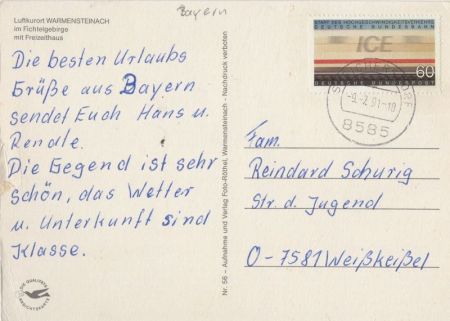 Luftkurort WARMENSTEINACH
im Fichtelgebirge
mit Freizeithaus
Bayern
Die besten Urlaubs
Grüße aus Bayern
sendet Euch Hans u.
Renate.
Die Gegend ist sehr
schön, das Wetter
u. Unterkunft sind
Klasse.
DIE QUALITÄTS
ANSICHTSKARTE
Nr. 56 – Aufnahme und Verlag Foto-Röthel, Warmensteinach – Nachdruck verboten
START DES HOCHGESCHWINDIGKEITSVERKEHRS
DEUTSCHE BUNDESBAHN
ICE
60
DEUTSCHE BUNDESPOST
-9.-7.91-18
8585
Fam.
Reindard Schurig
Str. d. Jugend
O-7581 Weißkeißel